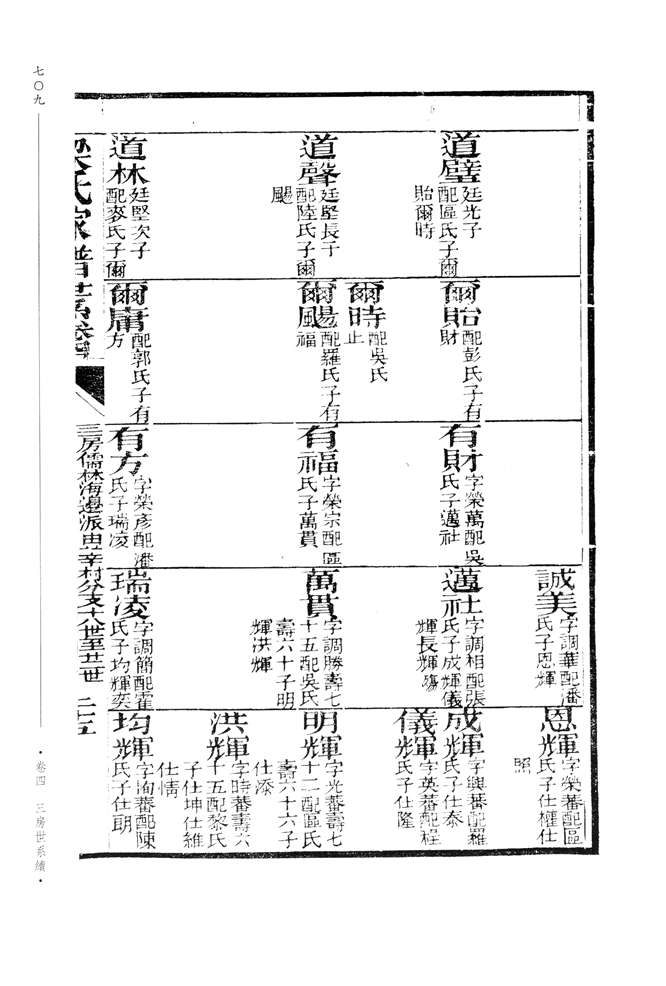 道璧
廷光子
配區氏子爾
貽爾時
道聲
廷堅長子
配陸氏子爾
颺
道林
廷堅次子
配麥氏子爾
爾貽
配彭氏子有
財
爾時
配吳氏
止
爾颺
配羅氏子有
福
爾庸
配郭氏子有
方
有財
字榮萬配吳
氏子邁社
有福
字榮宗配區
氏子萬貫
有方
字榮彥配潘
氏子瑞凌
誠美
字調華配潘
氏子恩輝
邁社
字調相配張
氏子成輝儀
輝長輝殤
萬貫
字調勝壽七
十五配吳氏
壽六十子明
輝洪輝
瑞凌
字調簡配霍
氏子均輝奕
恩輝
字榮蕃配區
氏子仕權仕
照
成輝
字興蕃配羅
氏子仕泰
儀輝
字英蕃配程
氏子仕隆
明輝
字光蕃壽七
十二配區氏
壽六十六子
仕添
洪輝
字時蕃壽六
十五配黎氏
子仕坤仕維
仕情
均輝
字洵蕃配陳
氏子仕朗
氏家譜 卷四
三房儒林海邊派由辛村分支十八世至廿二世 二十五
七〇九
·卷四 三房世系續·